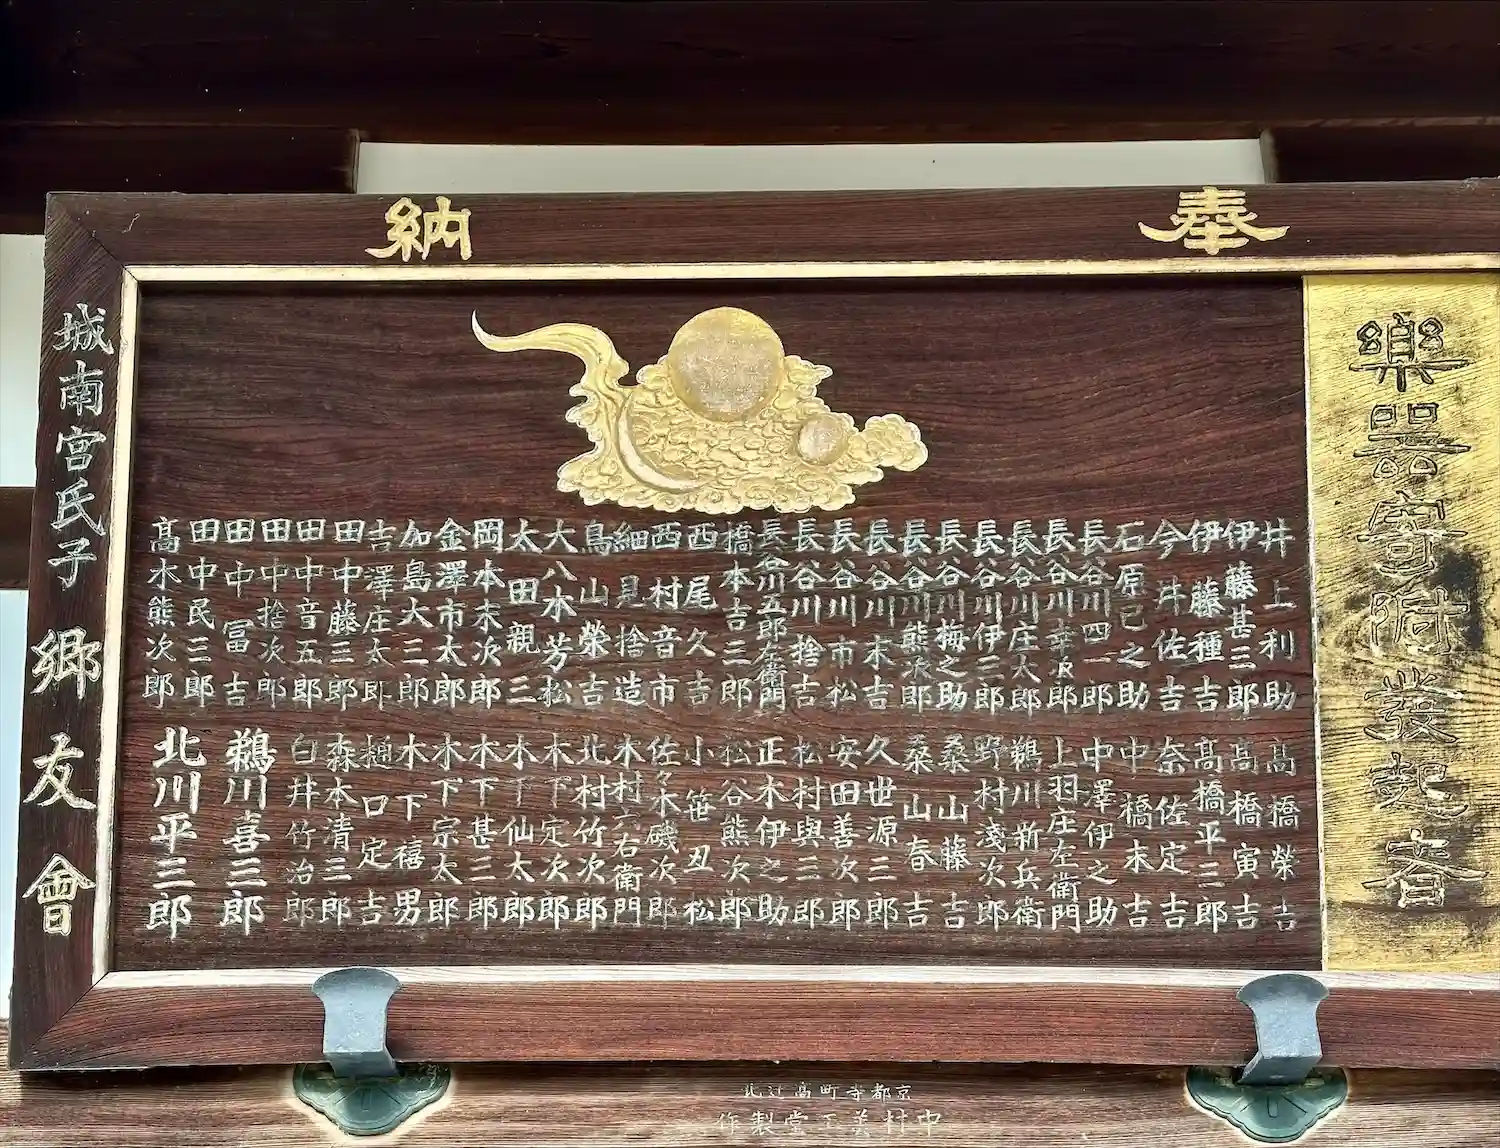 奉納
樂器寄附發起者
井上利助
伊藤甚三郎
伊藤種吉
今井佐吉
石原已之助
長谷川四一郎
長谷川幸次郎
長谷川庄太郎
長谷川伊三郎
長谷川梅之助
長谷川熊次郎
長谷川末吉
長谷川市松
長谷川捨吉
長谷川五郎左衛門
橋本吉三郎
西尾久吉
西村音市
細見捨造
鳥山榮吉
大八木芳松
太田親三
岡本末次郎
金澤市太郎
加島大三郎
吉澤庄太郎
田中藤三郎
田中音五郎
田中捨次郎
田中冨吉
田中民三郎
髙木熊次郎
髙橋榮吉
髙橋寅吉
髙橋平三郎
奈佐定吉
中橋末吉
中澤伊之助
上羽庄左衛門
鵜川新兵衛
野村淺次郎
桑山藤吉
桑山春吉
久世源三郎
安田善次郎
松村與三郎
正木伊之助
松谷熊次郎
小笹丑松
佐々木磯次郎
木村六右衛門
北村竹次郎
木下定次郎
木下仙太郎
木下甚三郎
木下宗太郎
木下禧男
樋口定吉
森本清三郎
白井竹治郎
鵜川喜三郎
北川平三郎
城南宮氏子郷友會
京都寺町髙辻北
中村美工堂製作